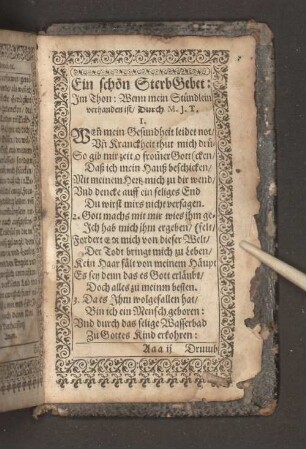 Ein schön SterbGebet:
Im Thon: Wenn mein Stündlein
verhanden ist/ Durch M. J. T.
1.
Weñ mein Gesundheit leidet not/
Vñ Kranckheit thut mich drü-
So gib mir zeit o frõuer Gott (cken/
Daß ich mein Hauß beschicken/
Mit meinem Hertz mich zu dir wend/
Vnd dencke auff ein seliges End
Du wirst mirs nicht versagen.
2. Gott machs mit mir wies ihm ge-
Ich hab mich ihm ergeben/ (felt/
Fordert er mich von dieser Welt/
Der Todt bringt mich zu Leben/
Kein Haar fält von meinem Häupt
Es sey denn das es Gott erläubt/
Doch alles zu meinm besten.
3. Da es Ihm wolgefallen hat/
Bin ich ein Mensch geboren:
Vnd durch das selige Wasserbad
Zu Gottes Kind erkohren:
Aaa ij Drumb